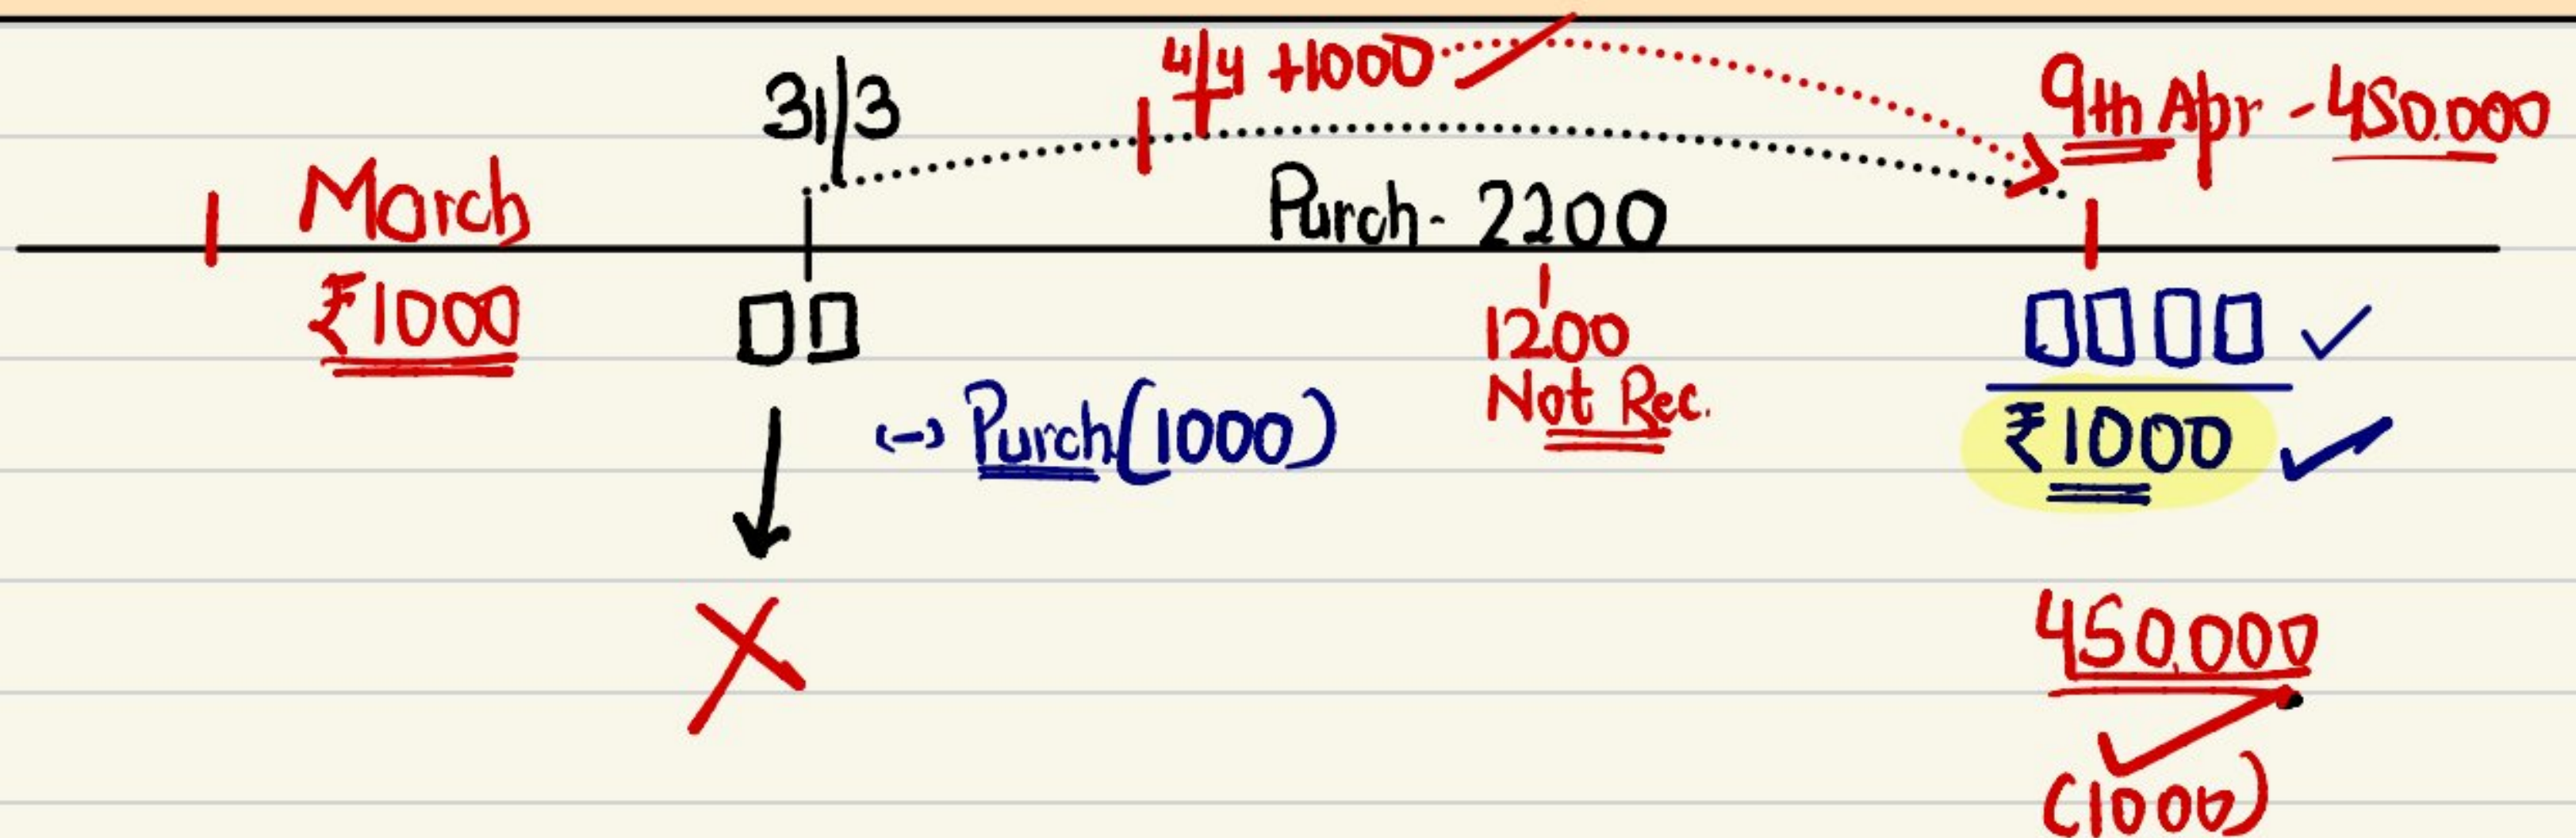 31/3
4/4 +1000
9th Apr - 450.000
March
Purch- 2200
₹1000
1200
Not Rec.
(-) Purch (1000)
₹1000
450.000
(1000)